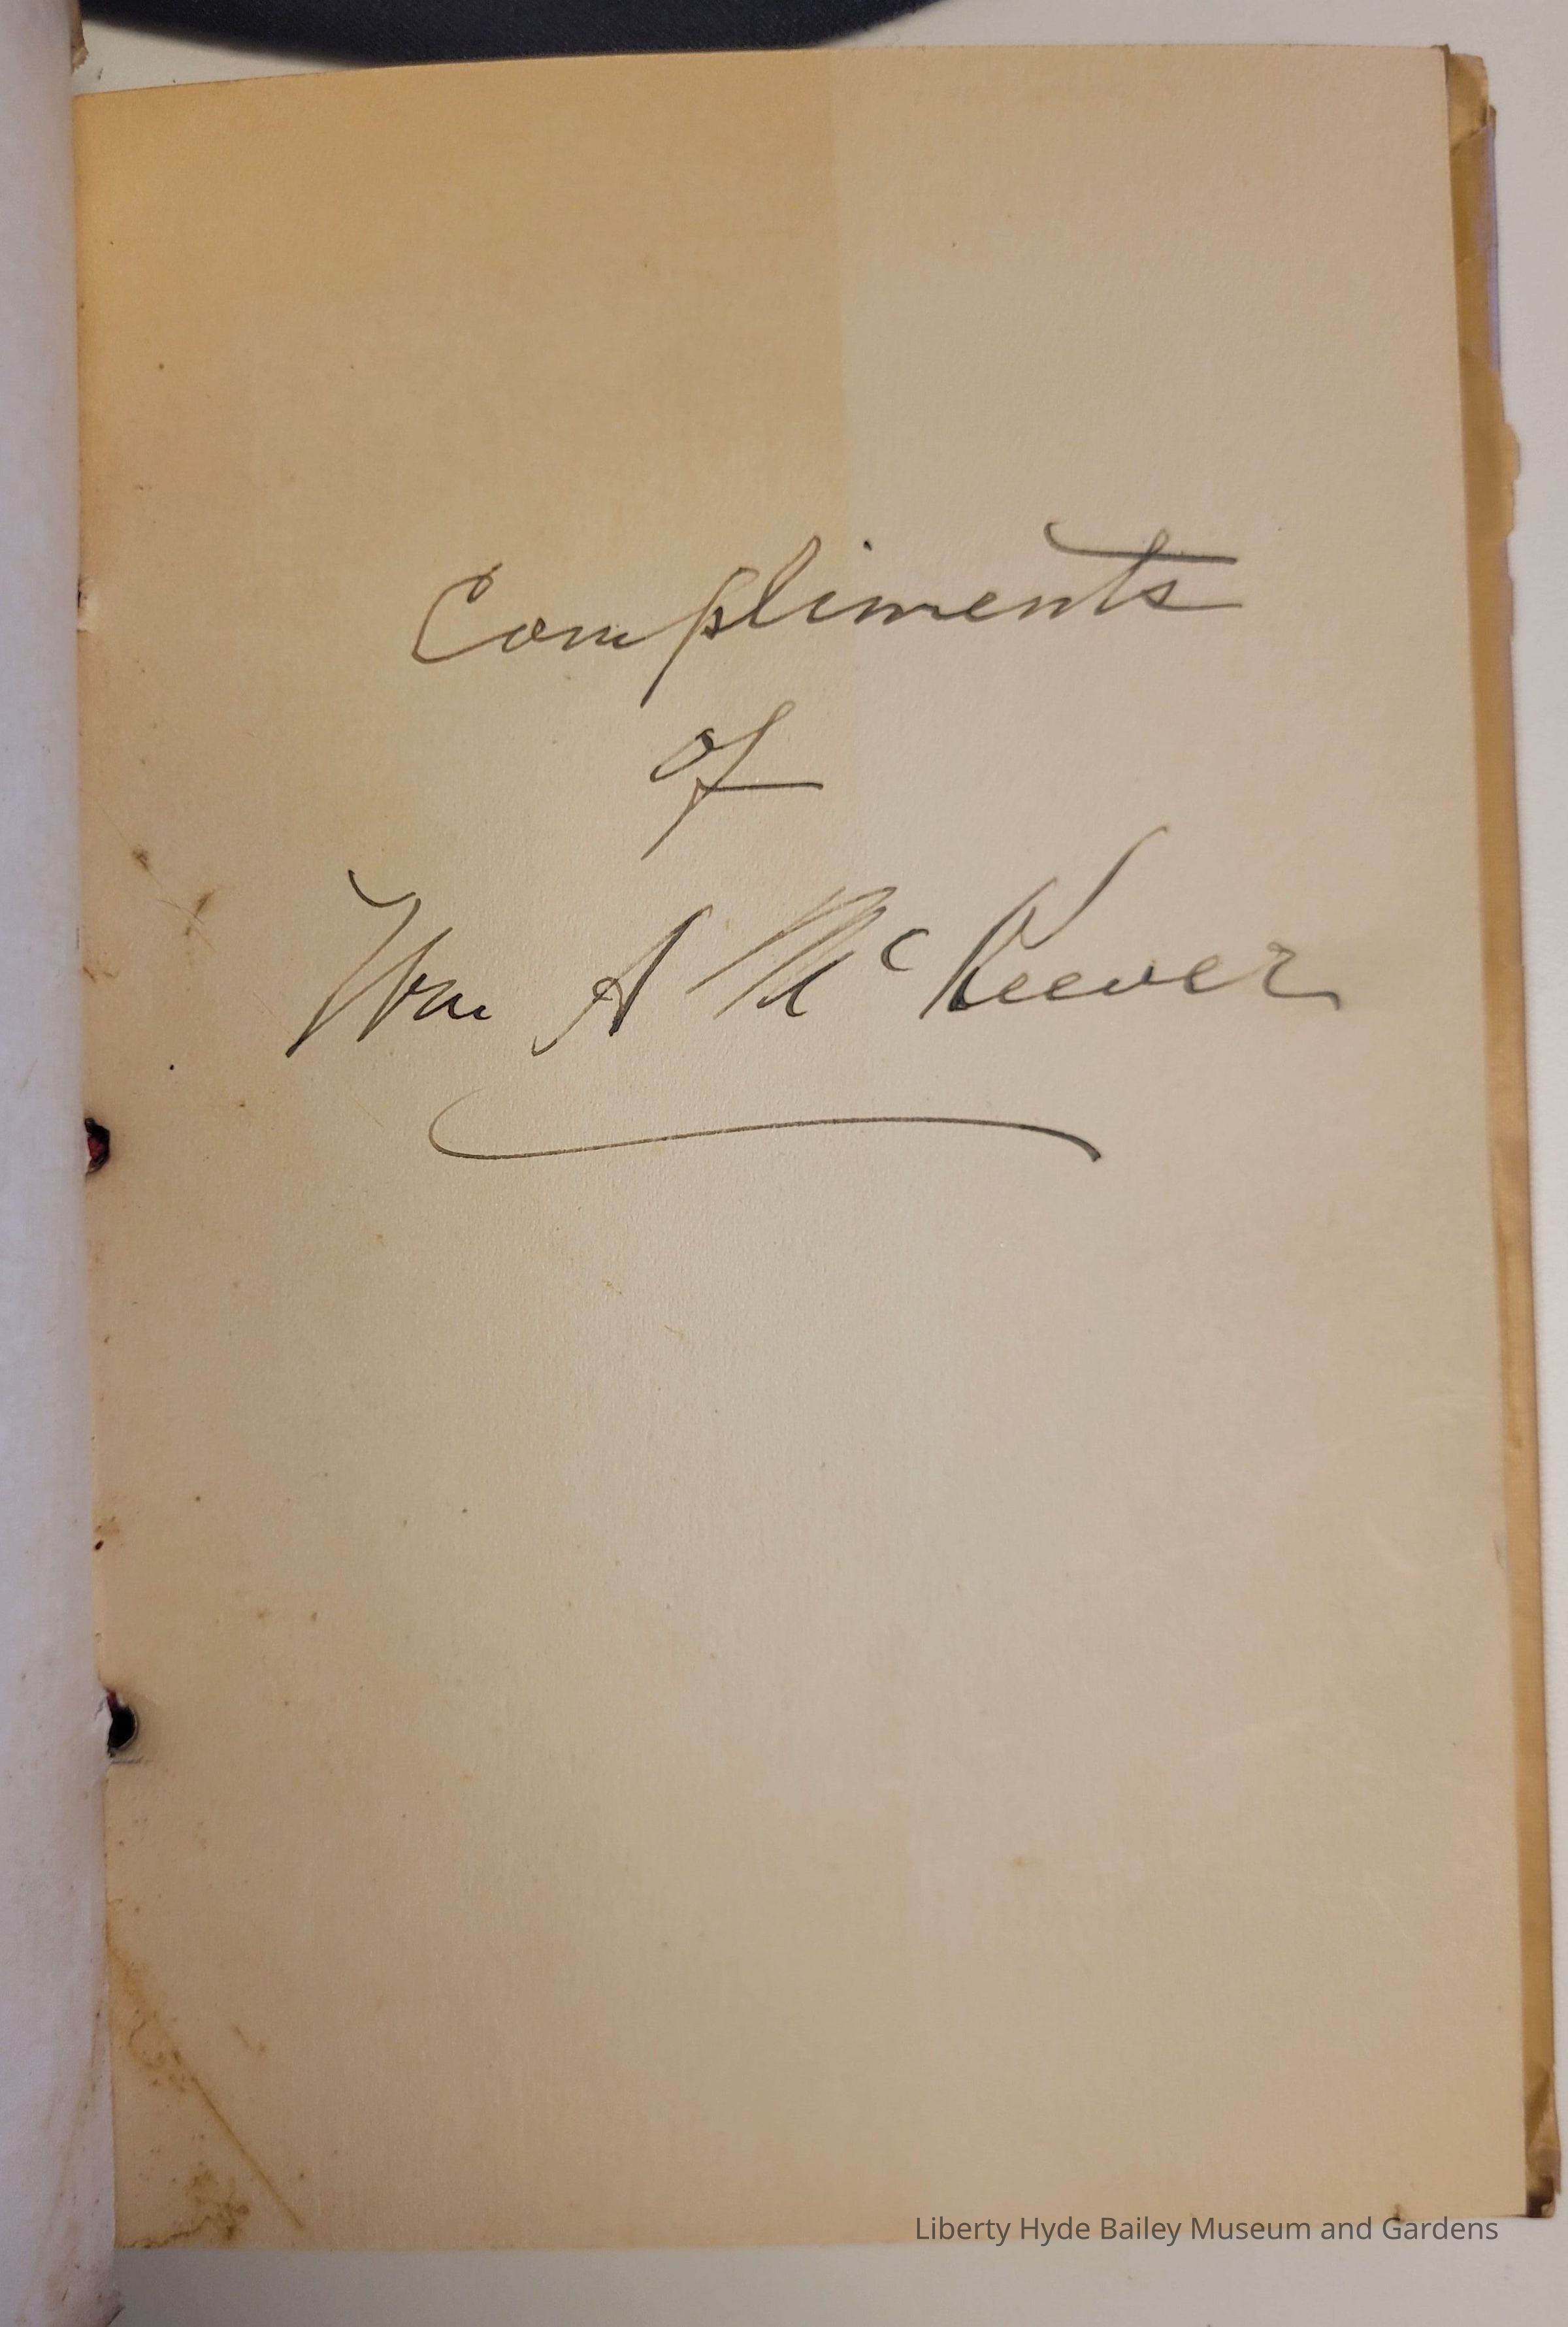 Compliments
of
Wm A McKeever
Liberty Hyde Bailey Museum and Gardens